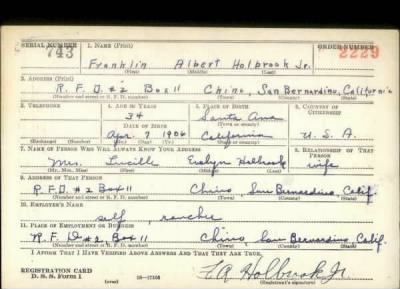 SERIAL NUMBER 1. NAME (Print) ORDER NUMBER
743 Franklin Albert Holbrook Jr. 2229
(First) (Middle) (Last)
2. ADDRESS (Print)
R.F.D. #2 Box 11 Chino, San Bernardino, California
(Number and street or R. F. D. number) (Town) (County) (State)
3. TELEPHONE 4. AGE IN YEARS 5. PLACE OF BIRTH 6. COUNTRY OF CITIZENSHIP
34 Santa Ana
(Town or county)
DATE OF BIRTH
Apr. 7 1906 California U. S. A.
(Exchange) (Number) (Mo.) (Day) (Yr.) (State or country)
7. NAME OF PERSON WHO WILL ALWAYS KNOW YOUR ADDRESS 8. RELATIONSHIP OF THAT PERSON
Mrs. Lucille Evelyn Holbrook wife
(Mr., Mrs., Miss) (First) (Middle) (Last)
9. ADDRESS OF THAT PERSON
R.F.D. #2 Box 11 Chino, San Bernardino, Calif.
(Number and street or R. F. D. number) (Town) (County) (State)
10. EMPLOYER'S NAME
self, rancher
11. PLACE OF EMPLOYMENT OR BUSINESS
R.F.D. #2 Box 11 Chino, San Bernardino, Calif.
(Number and street or R. F. D. number) (Town) (County) (State)
I AFFIRM THAT I HAVE VERIFIED ABOVE ANSWERS AND THAT THEY ARE TRUE.
REGISTRATION CARD
D. S. S. Form 1 (over) 16—17105 F A Holbrook Jr.
(Registrant's signature)